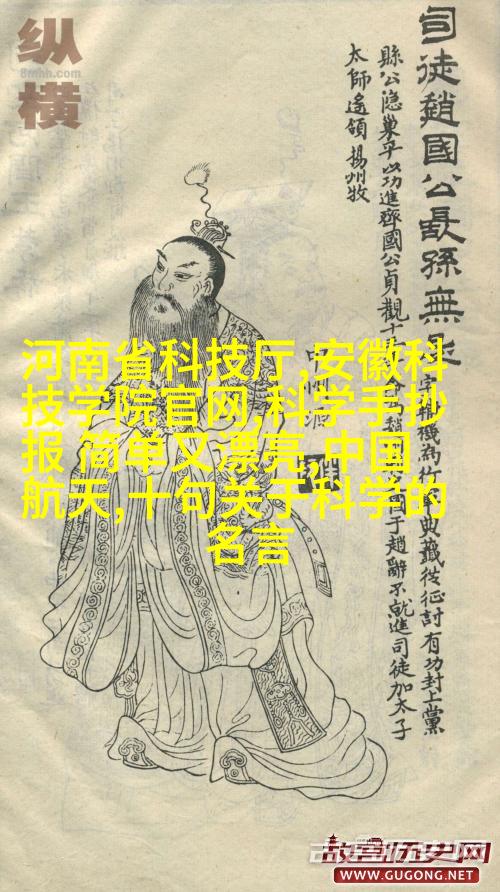 纵
8mhh.com
横
司徒趙國公長孫無忌
字輔機為行軍典籤從征討有功封上黨
縣公隐巢平以功進齊國公貞觀十于趙辭不就進司徒加太子
太師遙領揚州牧
河南省科技厅,安徽科
技学院官网,科学手抄
报 简单又漂亮,中国
航天,十句关于科学的
名言
故宫历史网
WWW.GUGONG.NET